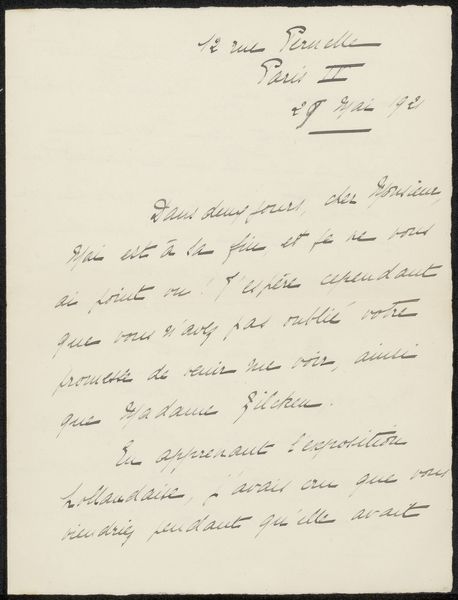 12 rue Pernelle
Paris IV
29 Mai 1921
Dans deux jours, cher Monsieur,
Mai est à la fin et je ne vous
ai point vu ! J'espère cependant
que vous n'avez pas oublié votre
promesse de venir me voir, ainsi
que Madame Zilcken.
En apprenant l'exposition
hollandaise, j'avais cru que vous
viendriez pendant qu'elle avait